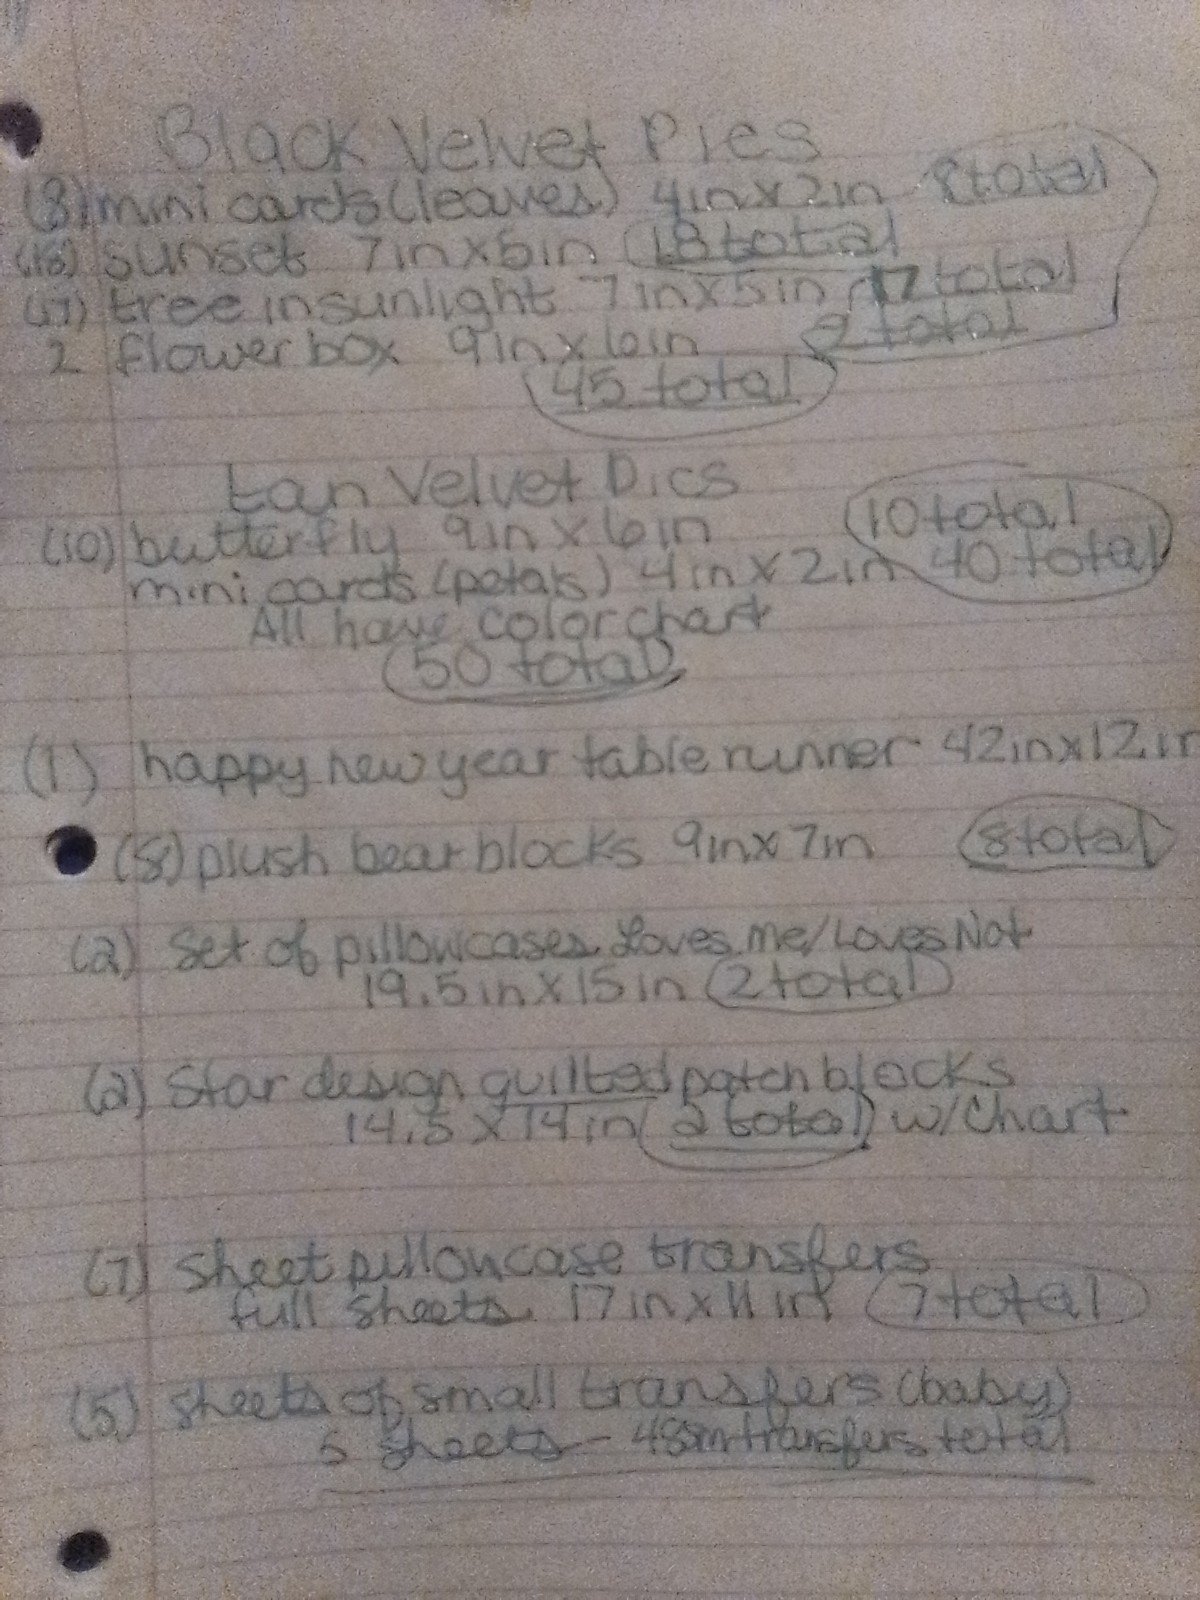 Black Velvet Pics
(8) mini cards (leaves) 4in x 2in 8 total
(18) sunset 7in x 5in 18 total
(17) tree in sunlight 7in x 5in 17 total
2 flower box 9in x 6in 2 total
45 total
tan Velvet Pics
(10) butterfly 9in x 6in 10 total
mini cards (petals) 4in x 2in 40 total
All have color chart
50 total
(1) happy new year table runner 42in x 12in
(8) plush bear blocks 9in x 7in 8 total
(2) Set of pillowcases Loves me/Loves Not
19.5in x 15in 2 total
(2) Star design quilted patch blocks
14.5 x 14in 2 total w/Chart
(7) sheet pillowcase transfers
full sheets 17in x 11in 7 total
(5) sheets of small transfers (baby)
5 sheets - 48 transfers total